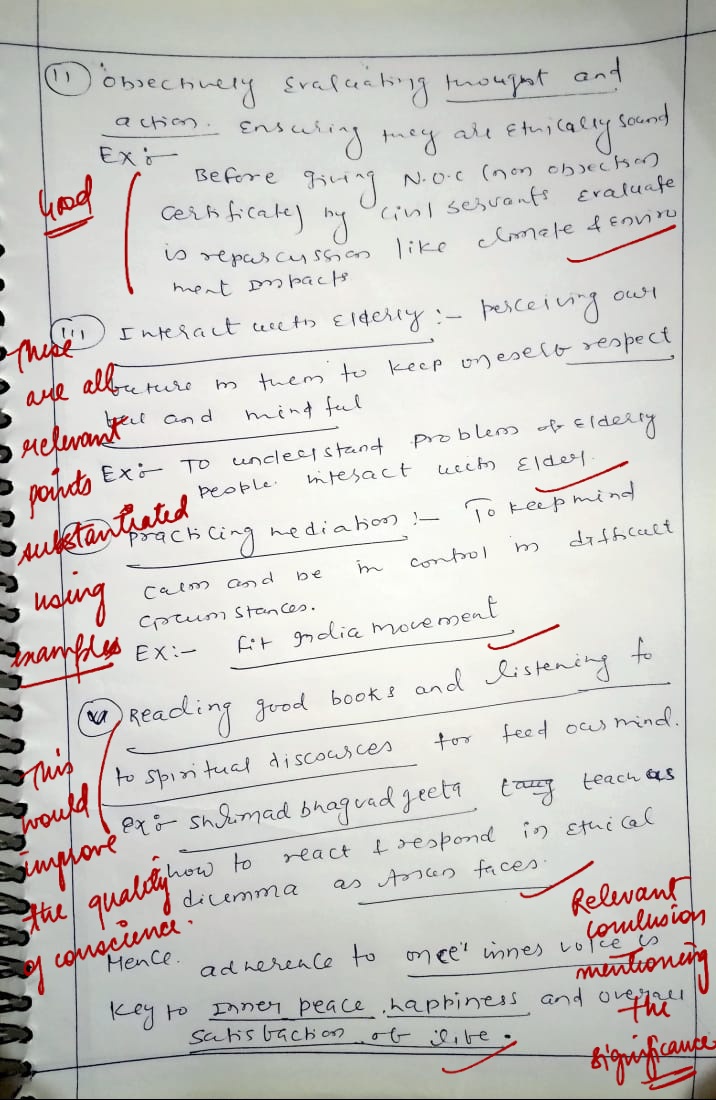 (ii) Objectively Evaluating thought and
action. Ensuring they are Ethically sound
Ex:-
Before giving N.O.C (non objection
certificate) by civil servants evaluate
is repascussion like climate & enviro
ment impacts
Good
(iii) Interact with Elderly :- perceiving our
future in them to keep oneself respect
ful and mindful
Ex:- To understand problem of Elderly
people. interact with Elder.
practicing mediation :- To keep mind
calm and be in control in difficult
circumstances.
Ex:- Fit India movement
These
are all
relevant
points
substantiated
using
examples
(v) Reading good books and listening to
to spiritual discources for feed our mind.
ex:- Shrimad bhagvad geeta teach us
how to react & respond in Ethical
dilemma as Arjun faces.
This
would
improve
the quality
of conscience.
Hence. adherence to once' inner voice is
Key to Inner peace, happiness and overall
satisfaction of life.
Relevant
conclusion
mentioning
the
significance